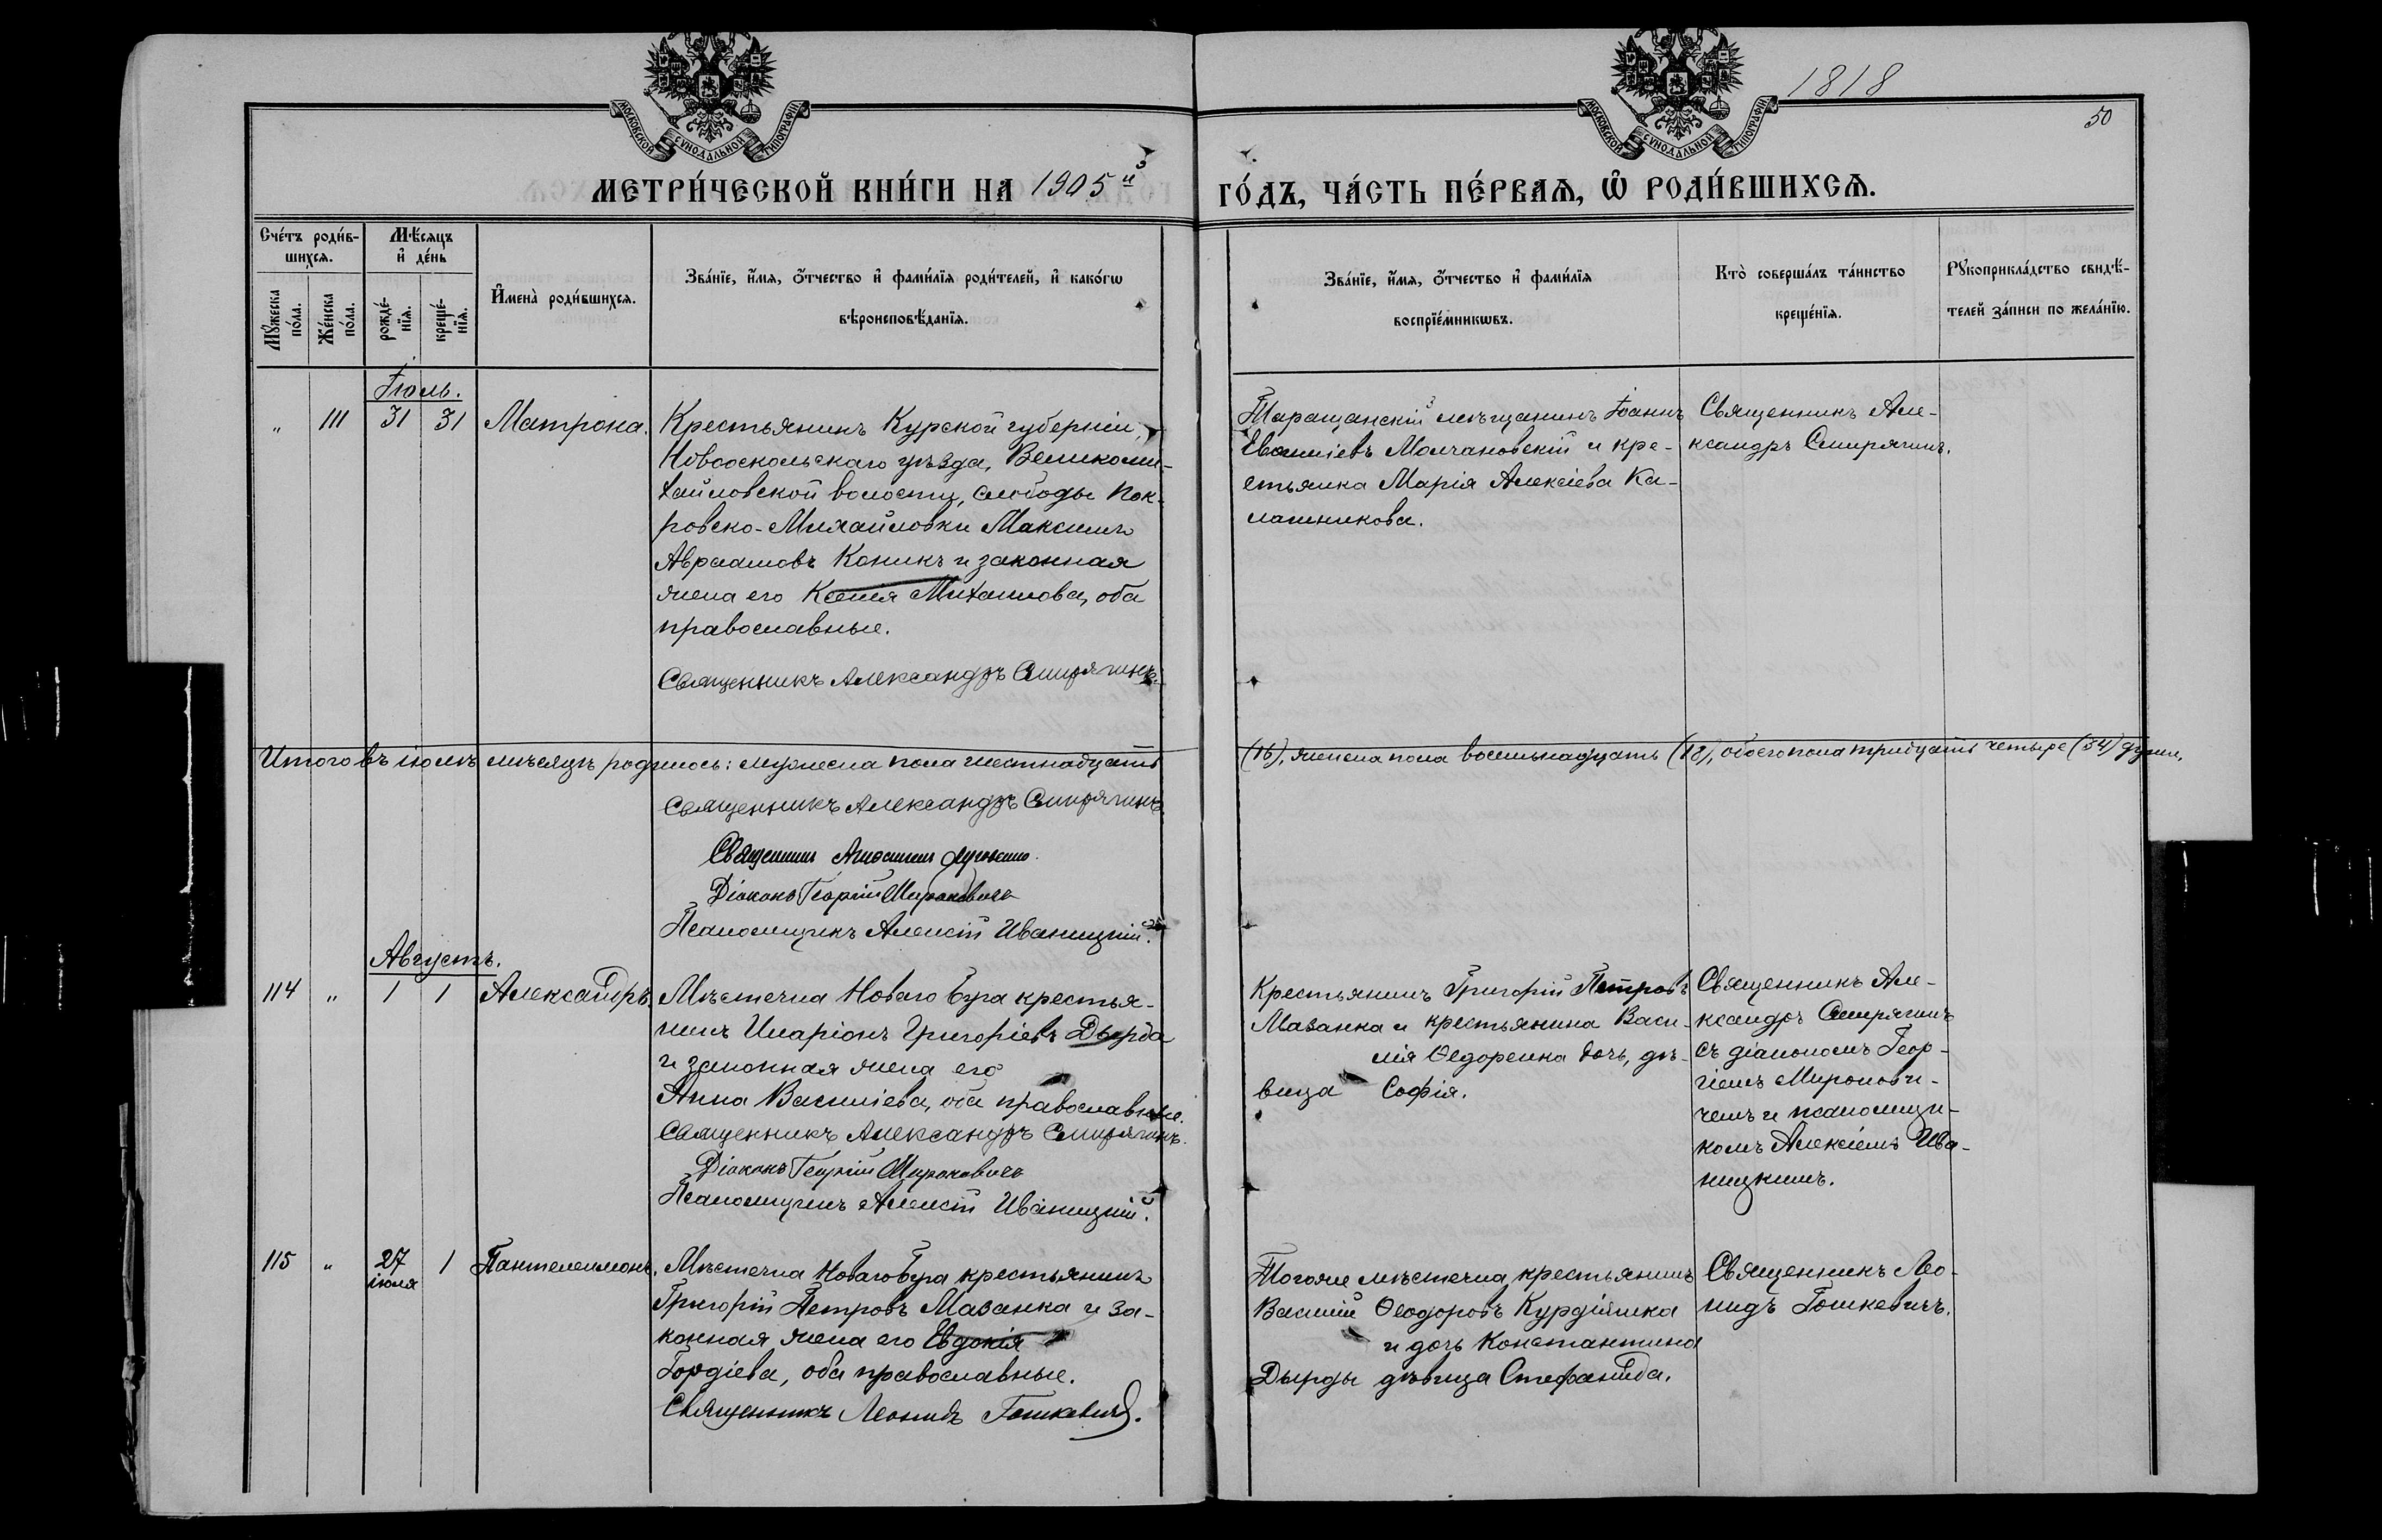 1818
50
МОСКОВСКОЙ СѴНОДАЛЬНОЙ ТИПОГРАФІИ
МОСКОВСКОЙ СѴНОДАЛЬНОЙ ТИПОГРАФІИ
МЕТРИ́ЧЕСКОЙ КНИ́ГИ НА 1905й ГО́ДЪ, ЧА́СТЬ ПЕ́РВАѦ, Ѡ РОДИ́ВШИХСѦ.
Сче́тъ роди́в-
шихсѧ.
Мꙋ́жеска по́ла.
Же́нска по́ла.
Мѣ́сѧцъ
и҆ де́нь
рожде́-
нїѧ.
креще́-
нїѧ.
И҆мена̀ роди́вшихсѧ.
Зва́нїе, и҆́мѧ, ѻ҆́тчество и҆ фами́лїѧ роди́телей, и҆ како́гѡ
вѣроисповѣ́данїѧ.
Зва́нїе, и҆́мѧ, ѻ҆́тчество и҆ фами́лїѧ
воспрїе́мникѡвъ.
Кто̀ соверша́лъ та́инство
креще́нїѧ.
Рꙋкоприкла́дство свидѣ́-
телей за́писи по жела́нїю.
Іюль.
„ 111 31 31 Матрона.
Крестьянинъ Курской губерніи,
Новооскольскаго уѣзда, Великоми-
хайловской волости, слободы Пок-
ровско-Михайловки Максимъ
Авраамовъ Коникъ и законная
жена его Ксенія Михаилова, оба
православные.
Священникъ Александръ Смирягинъ.
Таращанскій мѣщанинъ Іоаннъ
Евѳиміевъ Молчановскій и кре-
стьянка Марія Алексіева Ка-
лашникова.
Священникъ Але-
ксандръ Смирягинъ.
Итого въ іюлѣ мѣсяцѣ родилось: мужеска пола шестнадцать (16), женска пола восемьнадцать (18), обоего пола тридцать четыре (34) души.
Священникъ Александръ Смирягинъ
Священникъ
Діаконъ Георгій Мироновичъ
Псаломщикъ Алексій Иваницкій.
Августъ.
114 „ 1 1 Александръ.
Мѣстечка Новаго Буга крестья-
нинъ Иларіонъ Григоріевъ Дырда
и законная жена его
Анна Василіева, оба православные.
Священникъ Александръ Смирягинъ.
Діаконъ Георгій Мироновичъ
Псаломщикъ Алексій Иваницкій.
Крестьянинъ Григорій Петровъ
Мазанка и крестьянина Васи-
лія Ѳедоренка дочь, дѣ-
вица Софія.
Священникъ Але-
ксандръ Смирягинъ
съ діакономъ Геор-
гіемъ Миронови-
чемъ и псаломщи-
комъ Алексіемъ Ива-
ницкимъ.
115 „ 27 1 Пантелеимонъ.
іюля
Мѣстечка Новаго Буга крестьянинъ
Григорій Петровъ Мазанка и за-
конная жена его Евдокія
Гордіева, оба православные.
Священникъ Леонидъ Гошкевичъ.
Тогоже мѣстечка, крестьянинъ
Василій Ѳеодоровъ Курдійшка
и дочь Константина
Дырды дѣвица Стефанида.
Священникъ Лео-
нидъ Гошкевичъ.